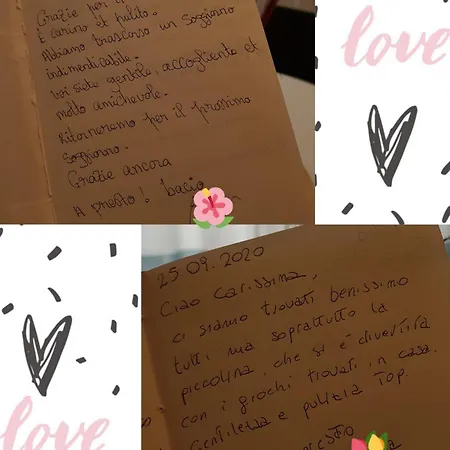 Grazie per
È carino et pulito.
Abbiamo trascorso un Soggiorno
indimenticabile.
Voi siete gentile, accogliente et
molto amichevole.
Ritorneremo per il prossimo
Soggiorno.
Grazie ancora
A presto! bacio
love
25.09.2020
Ciao carissima,
ci siamo trovati benissimo
tutti ma soprattutto la
piccolina, che si è divertita
con i giochi trovati in casa.
Gentilezza e pulizia Top.
love